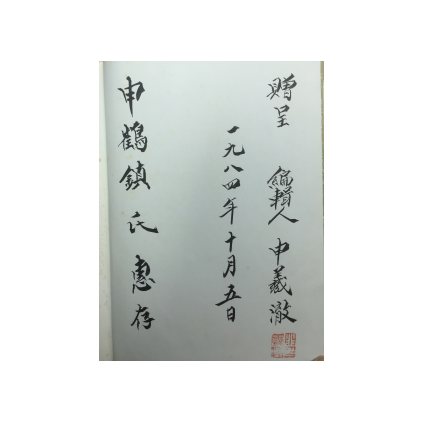 贈呈 編輯人 申義澈
一九八四年十月五日
申鶴鎮 氏 惠存